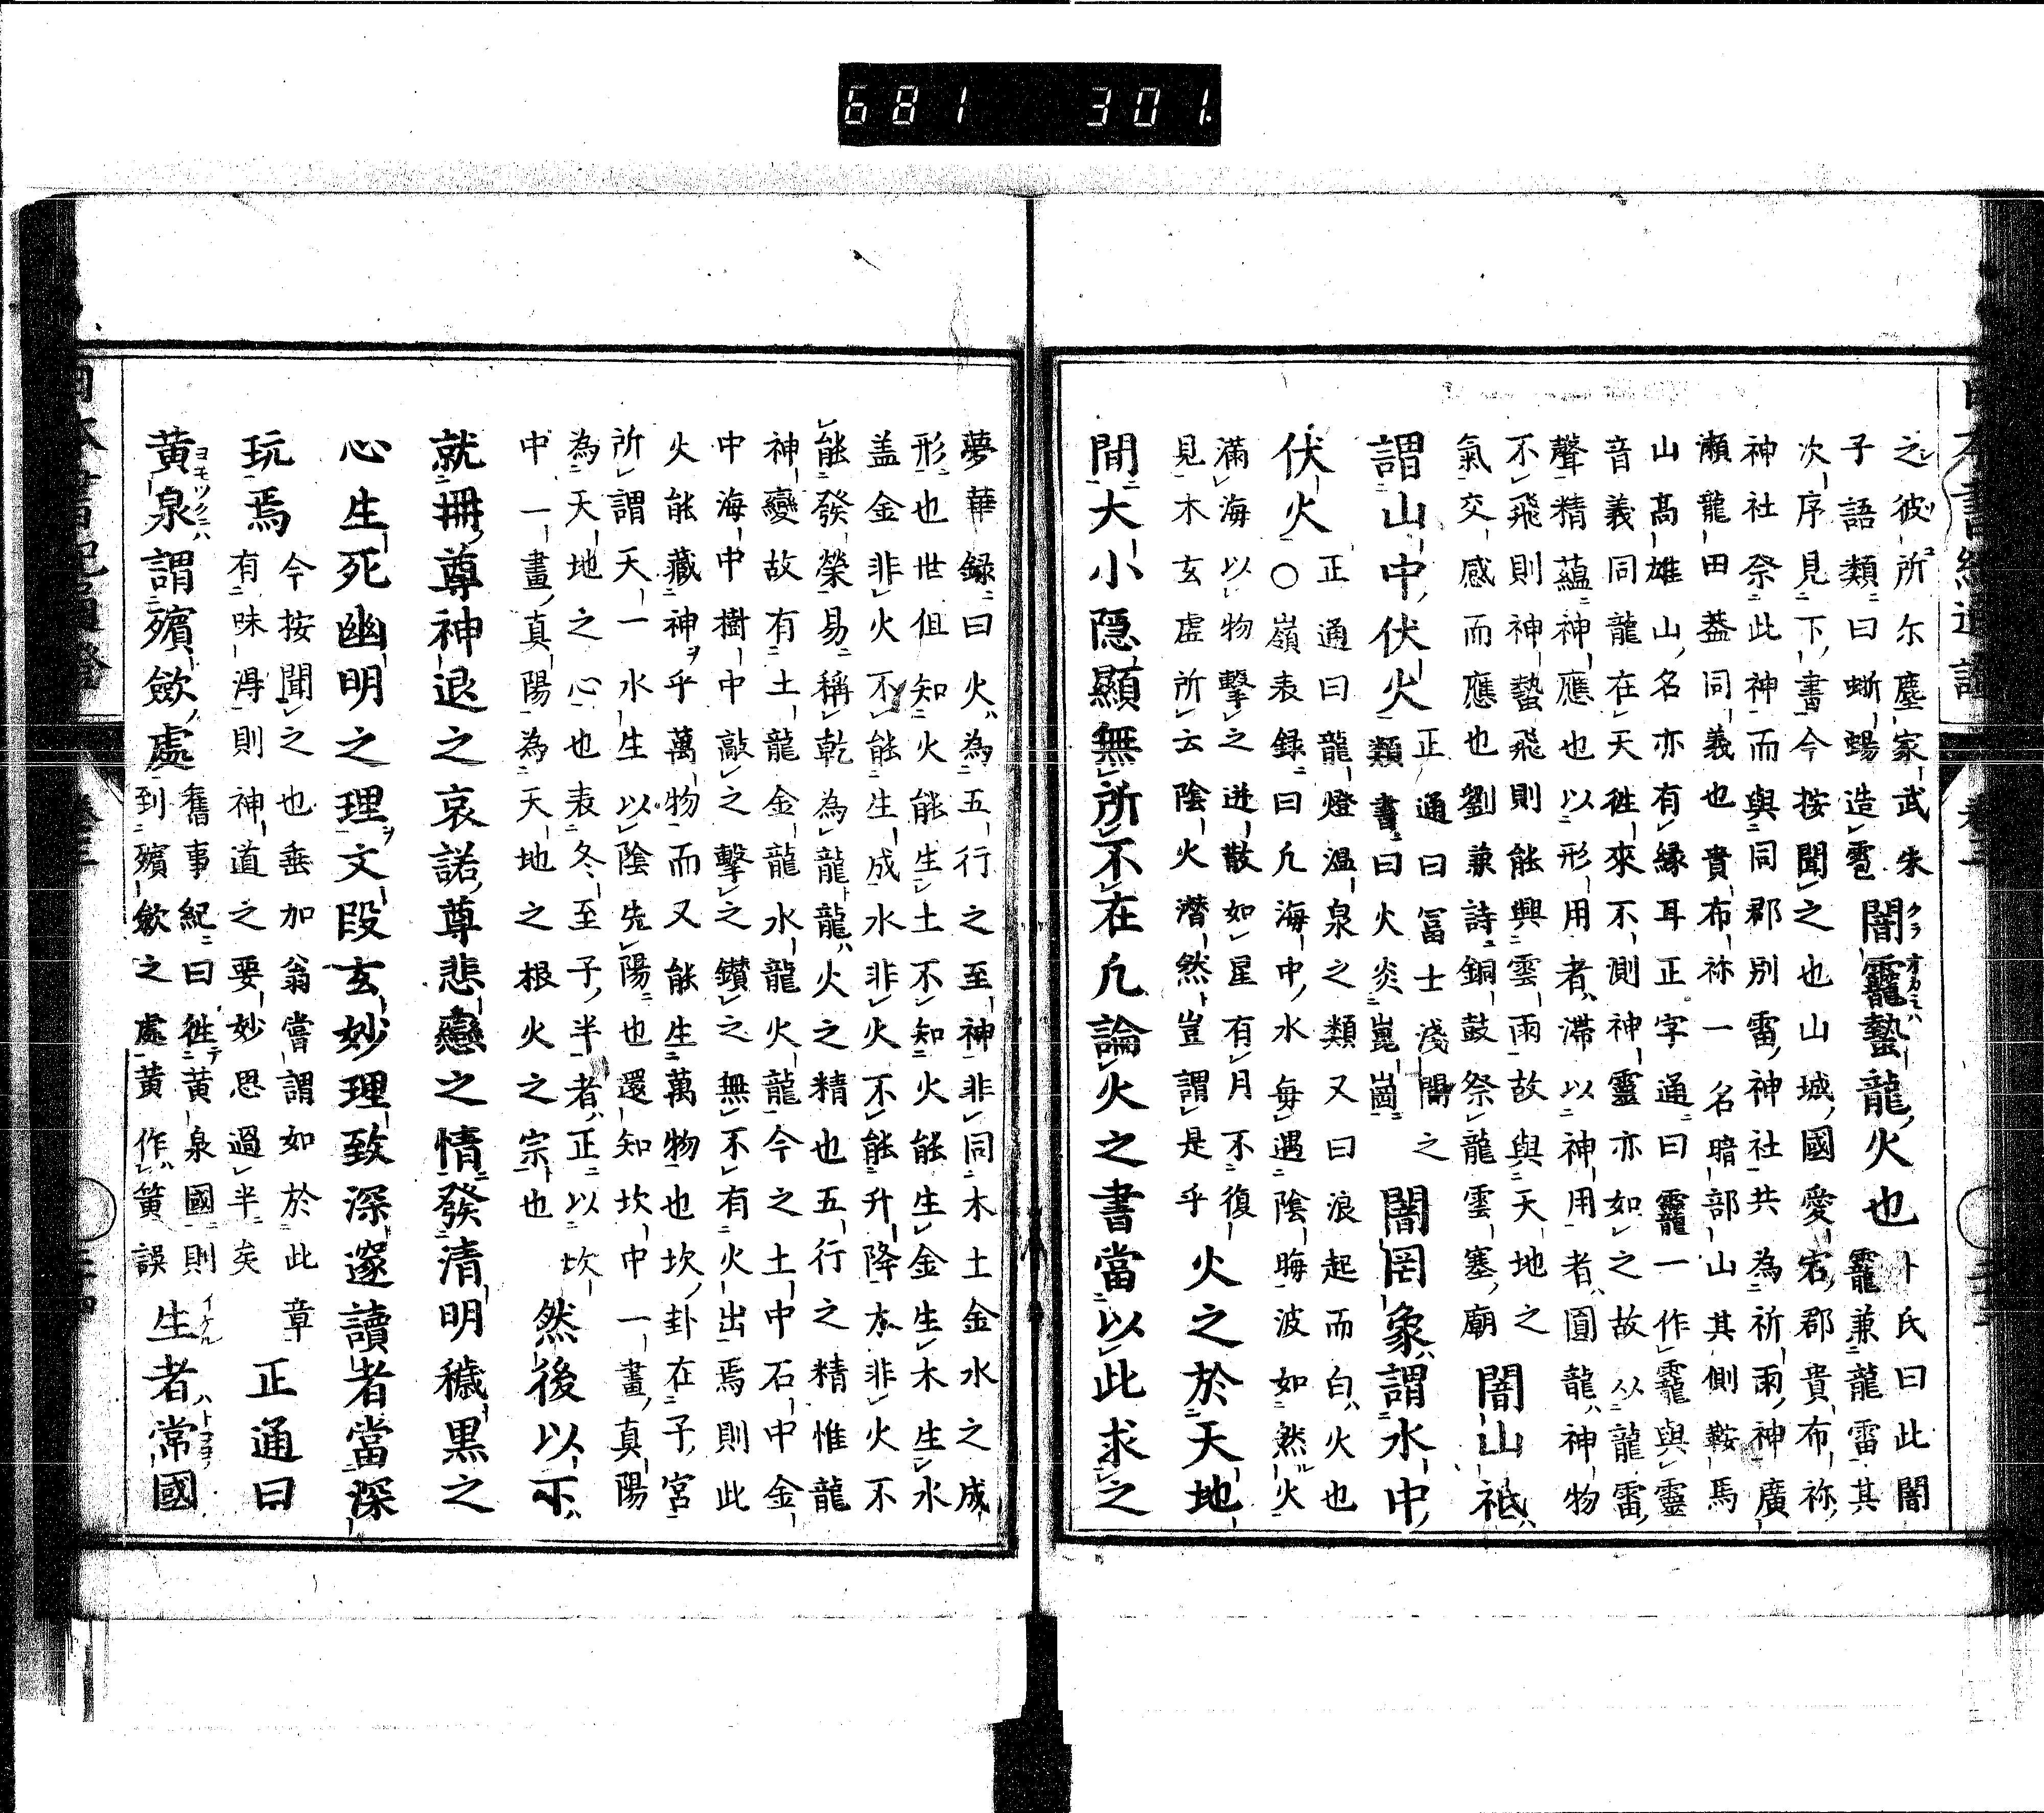 681 301
之彼所尓塵家武朱
子語類曰蜥蜴造雹
闇龗蟄龍火也
卜氏曰此闇
龗兼龍雷其
次序見下書今按聞之也山城國愛宕郡貴布祢
神社祭此神而與同郡別雷神社共為祈雨神廣
瀨龍田葢同義也貴布祢一名暗部山其側鞍馬
山髙雄山名亦有縁耳正字通曰龗一作靇與靈
音義同龍在天徃來不測神靈亦如之故以龍雷
聲精蘊神應也以形用者滯以神用者圓龍神物
不飛則神蟄飛則能興雲雨故與天地之
氣交感而應也劉兼詩銅鼓祭龍雲塞廟
闇山祇
謂山中伏火
正通曰冨士淺間之
類書曰火炎崑崗
闇罔象謂水中
伏火
正通曰龍燈温泉之類又曰浪起而白火也
○嶺表録曰凢海中水毎遇陰晦波如然火
滿海以物擊之迸散如星有月不復
見木玄虚所云陰火潜然豈謂是乎
火之於天地
間大小隠顯無所不在凢論火之書當以此求之
夢華録曰火為五行之至神非同木土金水之成
形也世但知火能生土不知火能生金生木生水
盖金非火不能生成水非火不能升降木非火不
能發榮易稱乾為龍龍火之精也五行之精惟龍
神變故有土龍金龍水龍火龍今之土中石中金
中海中樹中敲之擊之鑽之無不有火出焉則此
火能藏神乎萬物而又能生萬物也坎卦在子宮
所謂天一水生以陰先陽也還知坎中一畫真陽
為天地之心也表冬至子半者正以坎
中一畫真陽為天地之根火之宗也
然後以下
就冊尊神退之哀諾尊悲戀之情發清明穢黒之
心生死幽明之理文段玄妙理致深邃讀者當深
玩焉
今按聞之也垂加翁嘗謂如於此章
有味得則神道之要妙思過半矣
正通曰
黄泉謂殯斂處
舊事紀曰徃黄泉國則
到殯斂之處黄作簧誤
生者常國